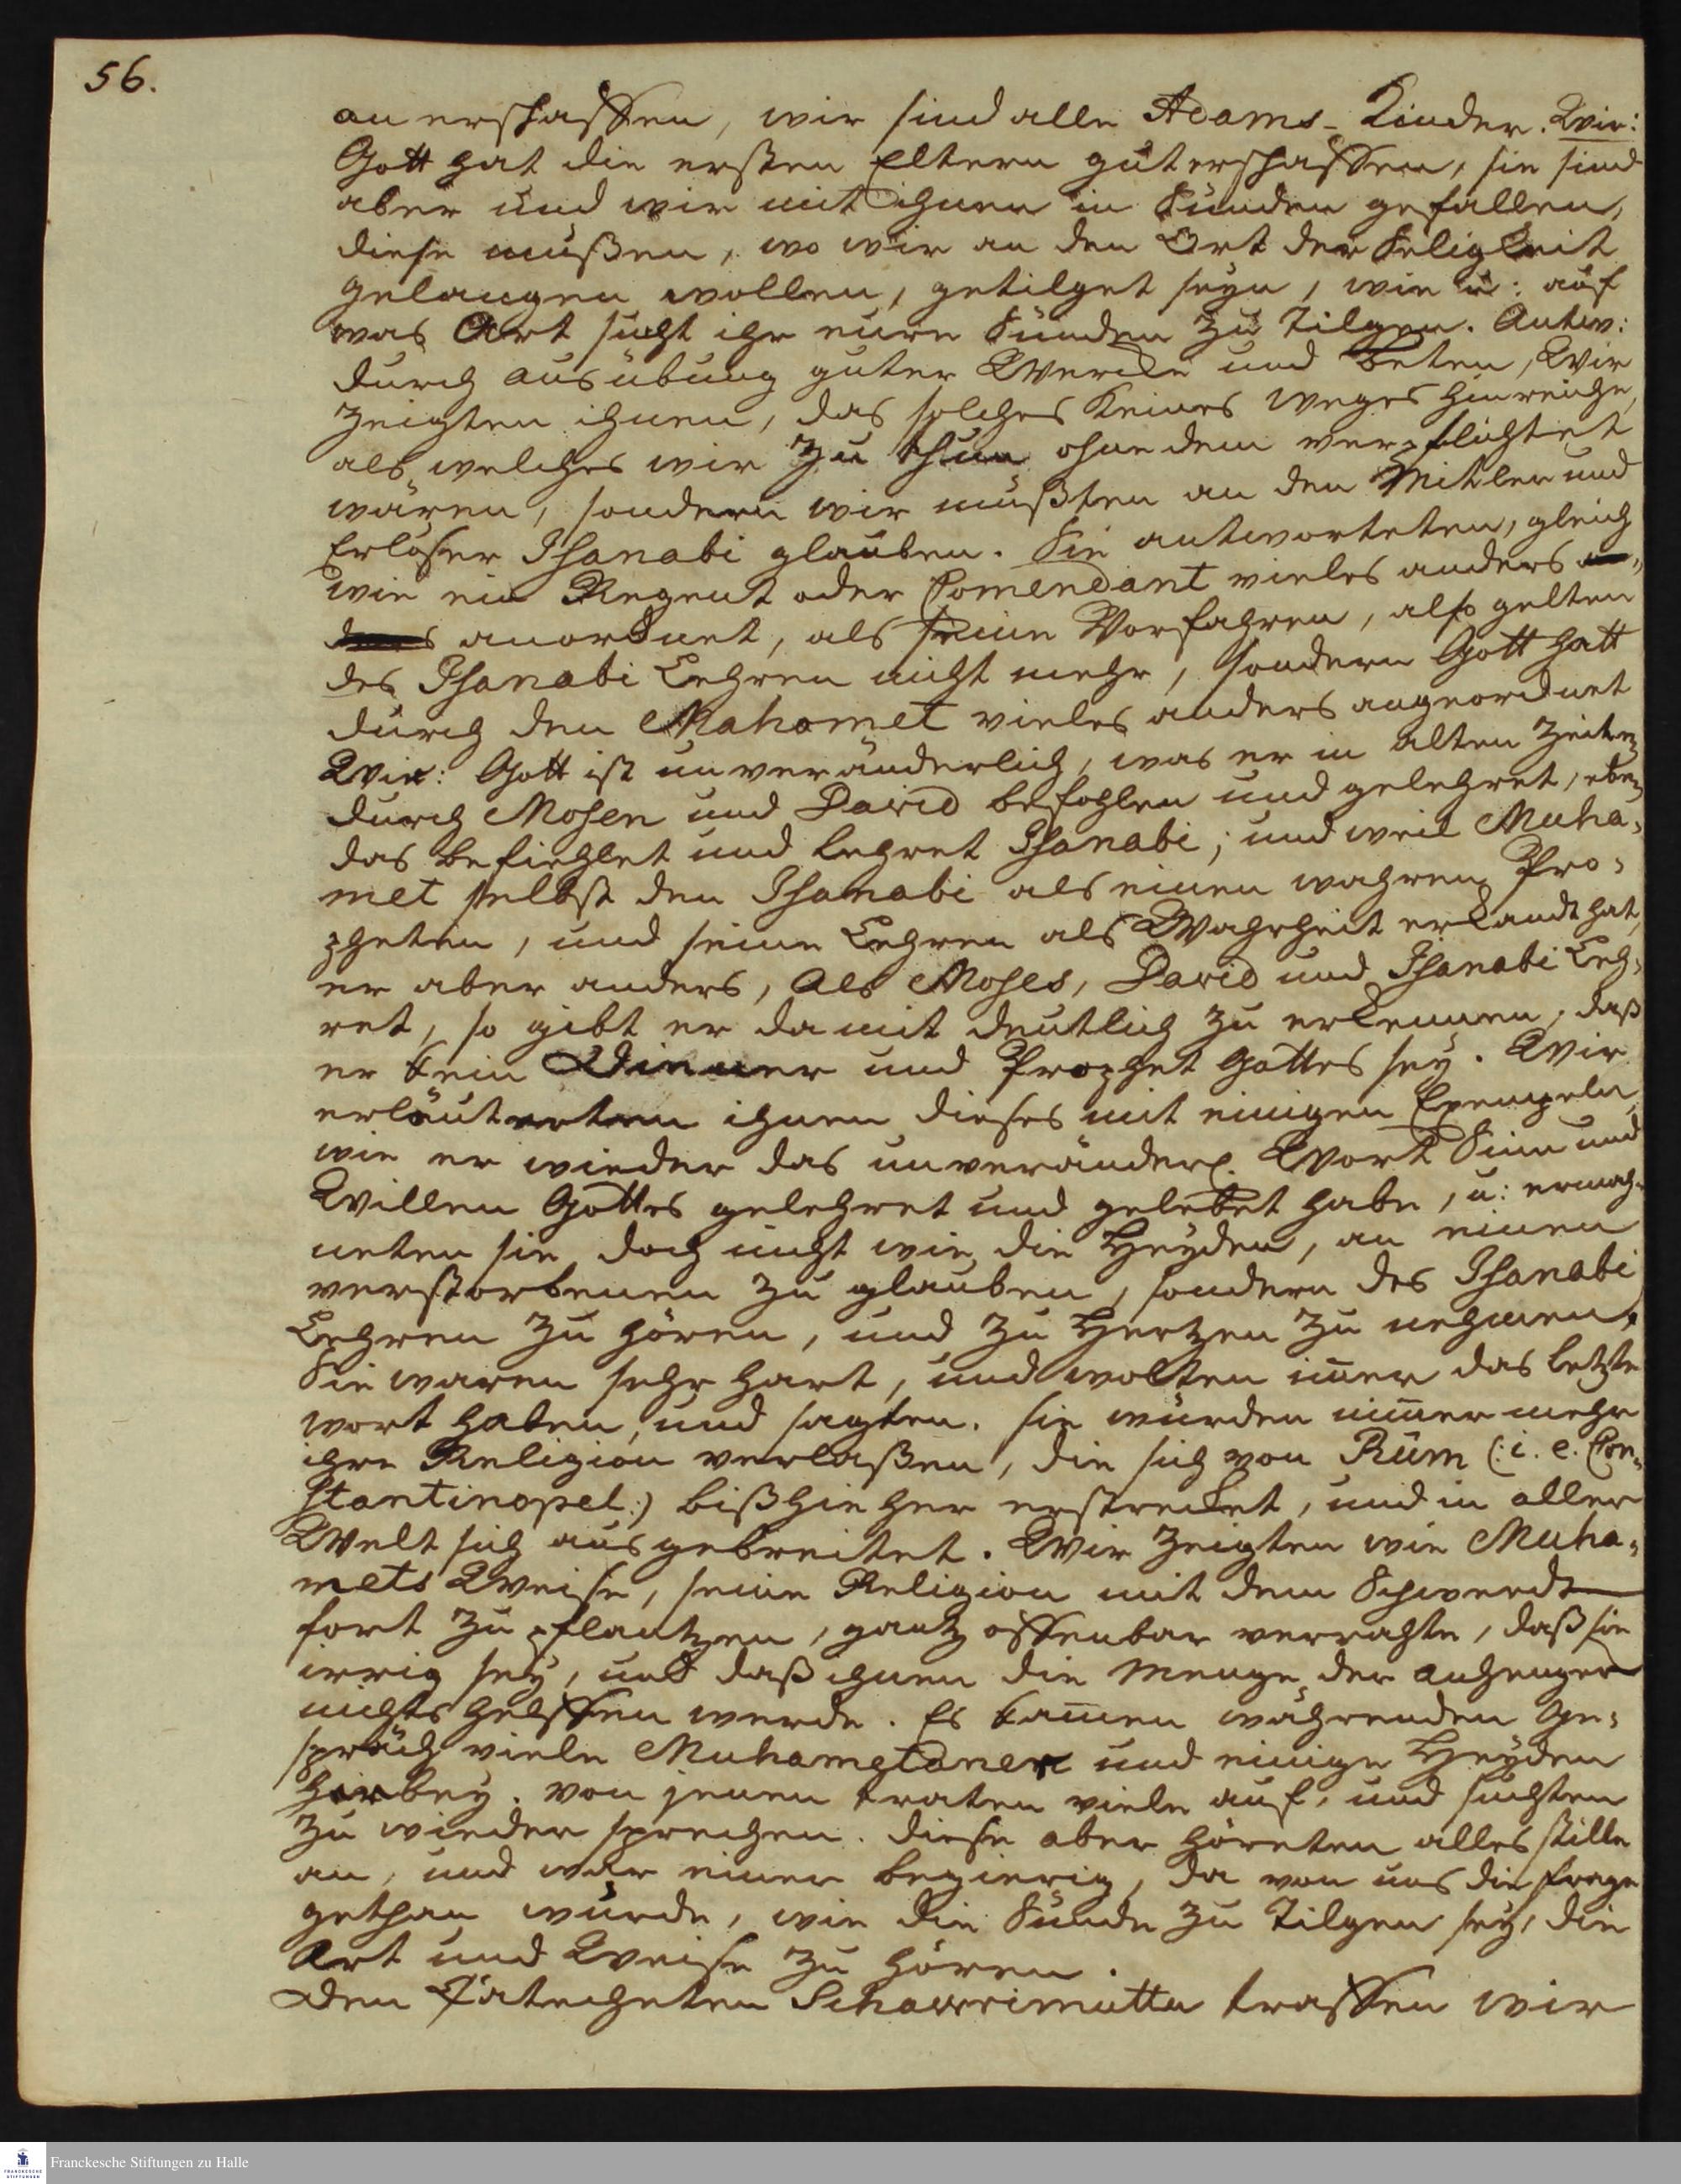 56.
anerschaffen, wir sind alle Adams-Kinder. Wir:
Gott hat die ersten Eltern gut erschaffen, sie sind
aber und wir mit ihnen in Sünden gefallen,
diese müßen, wo wir an den Ort der Seligkeit
gelangen wollen, getilget seyn, wie u: auf
was Art sucht ihr eure Sünden zu tilgen. Antw:
durch ausübung guter Wercke und beten, Wir
zeigten ihnen, das solches keines weges hinreiche,
als welches wir zu thun ohne dem verpflichtet
wären, sondern wir müßten an den Mitler und
Erlöser Isanabi glauben. Sie antworteten, gleich
wie ein Regent oder Comendant vieles anders
anordnet, als seine Vorfahren, also gelten
des Isanabi Lehren nicht mehr, sondern Gott hatt
durch den Mahomet vieles anders angeordnet
Wir: Gott ist unveränderlich, was er in alten Zeiten
durch Mosen und David befohlen und gelehret, eben
das befiehlet und lehret Isanabi; und weil Muha-
met selbst den Isanabi als einen wahren Pro-
pheten, und seine Lehren als Wahrheit erkandt hat,
er aber anders, als Moses, David und Isanabi Leh-
ret, so gibt er damit deutlich zu erkennen, daß
er kein Diener und Prophet Gottes sey. Wir
erläuterten ihnen dieses mit einigen Exempeln,
wie er wieder das unveränderl. Wort Sinn und
Willen Gottes gelehret und gelebet habe, u: ermah-
neten sie doch nicht wie die Heyden, an einen
verstorbenen zu glauben, sondern des Isanabi
Lehren zu hören, und zu Hertzen zu nehmen.
Sie waren sehr hart, und wolten im̄er das letzte
wort haben, und sagten. sie würden nim̄ermehr
ihre Religion verlaßen, die sich von Rûm (: i. e. Con-
stantinopel:) biß hieher erstrecket, und in aller
Welt sich ausgebreitet. Wir zeigten wie Muha-
mets Weise, seine Religion mit dem Schwerdt
fort zu pflantzen, gantz offenbar verrathe, daß sie
irrig sey, und daß ihnen die Menge der Anhenger
nichts helffen werde. Es kam̄en währenden Ge-
spräch viele Muhametaner und einige Heyden
hirbey. von jenen traten viele auf, und suchten
zu wieder sprechen. diese aber höreten alles stille
an, und war einer begierig, da von uns die frage
gethan wurde, wie die Sünde zu tilgen sey, die
Art und Weise zu hören.
Den Catecheten Schawrimuttu traffen wir
Franckesche Stiftungen zu Halle
FRANCKESCHE
STIFTUNGEN